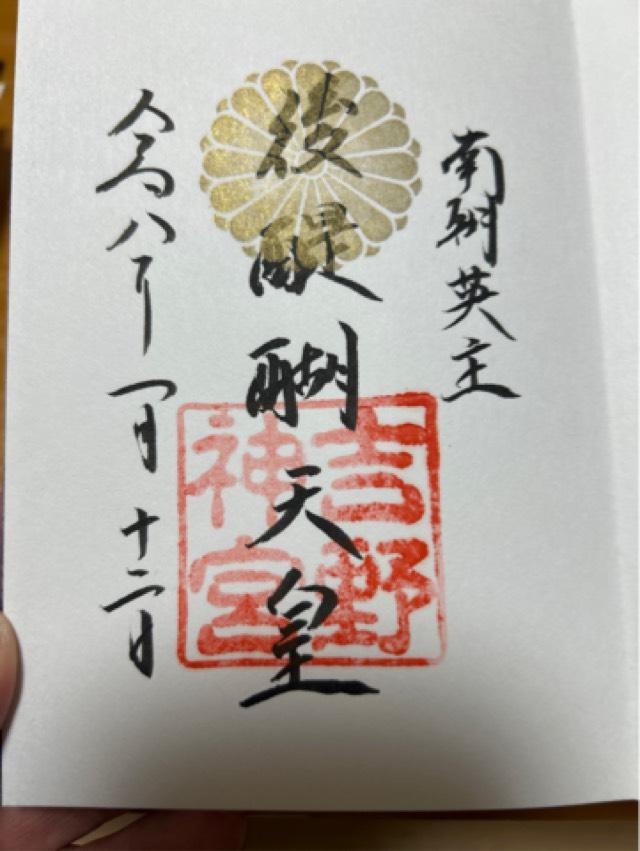 南朝英主
後醍醐天皇
吉野
神宮
令和八年一月十二日